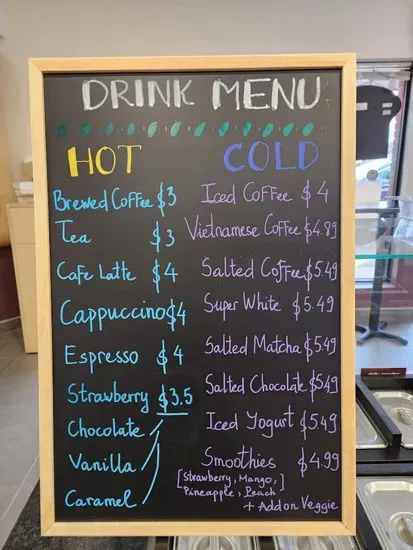 DRINK MENU
HOT
Brewed Coffee $3
Tea $3
Cafe Latte $4
Cappuccino $4
Espresso $4
Strawberry $3.5
Chocolate
Vanilla
Caramel
COLD
Iced Coffee $4
Vietnamese Coffee $4.89
Salted Coffee $5.49
Super White $5.49
Salted Matcha $5.49
Salted Chocolate $5.49
Iced Yogurt $5.49
Smoothies $4.99
[Strawberry, Mango,
Pineapple, Peach]
+ Add on Veggie